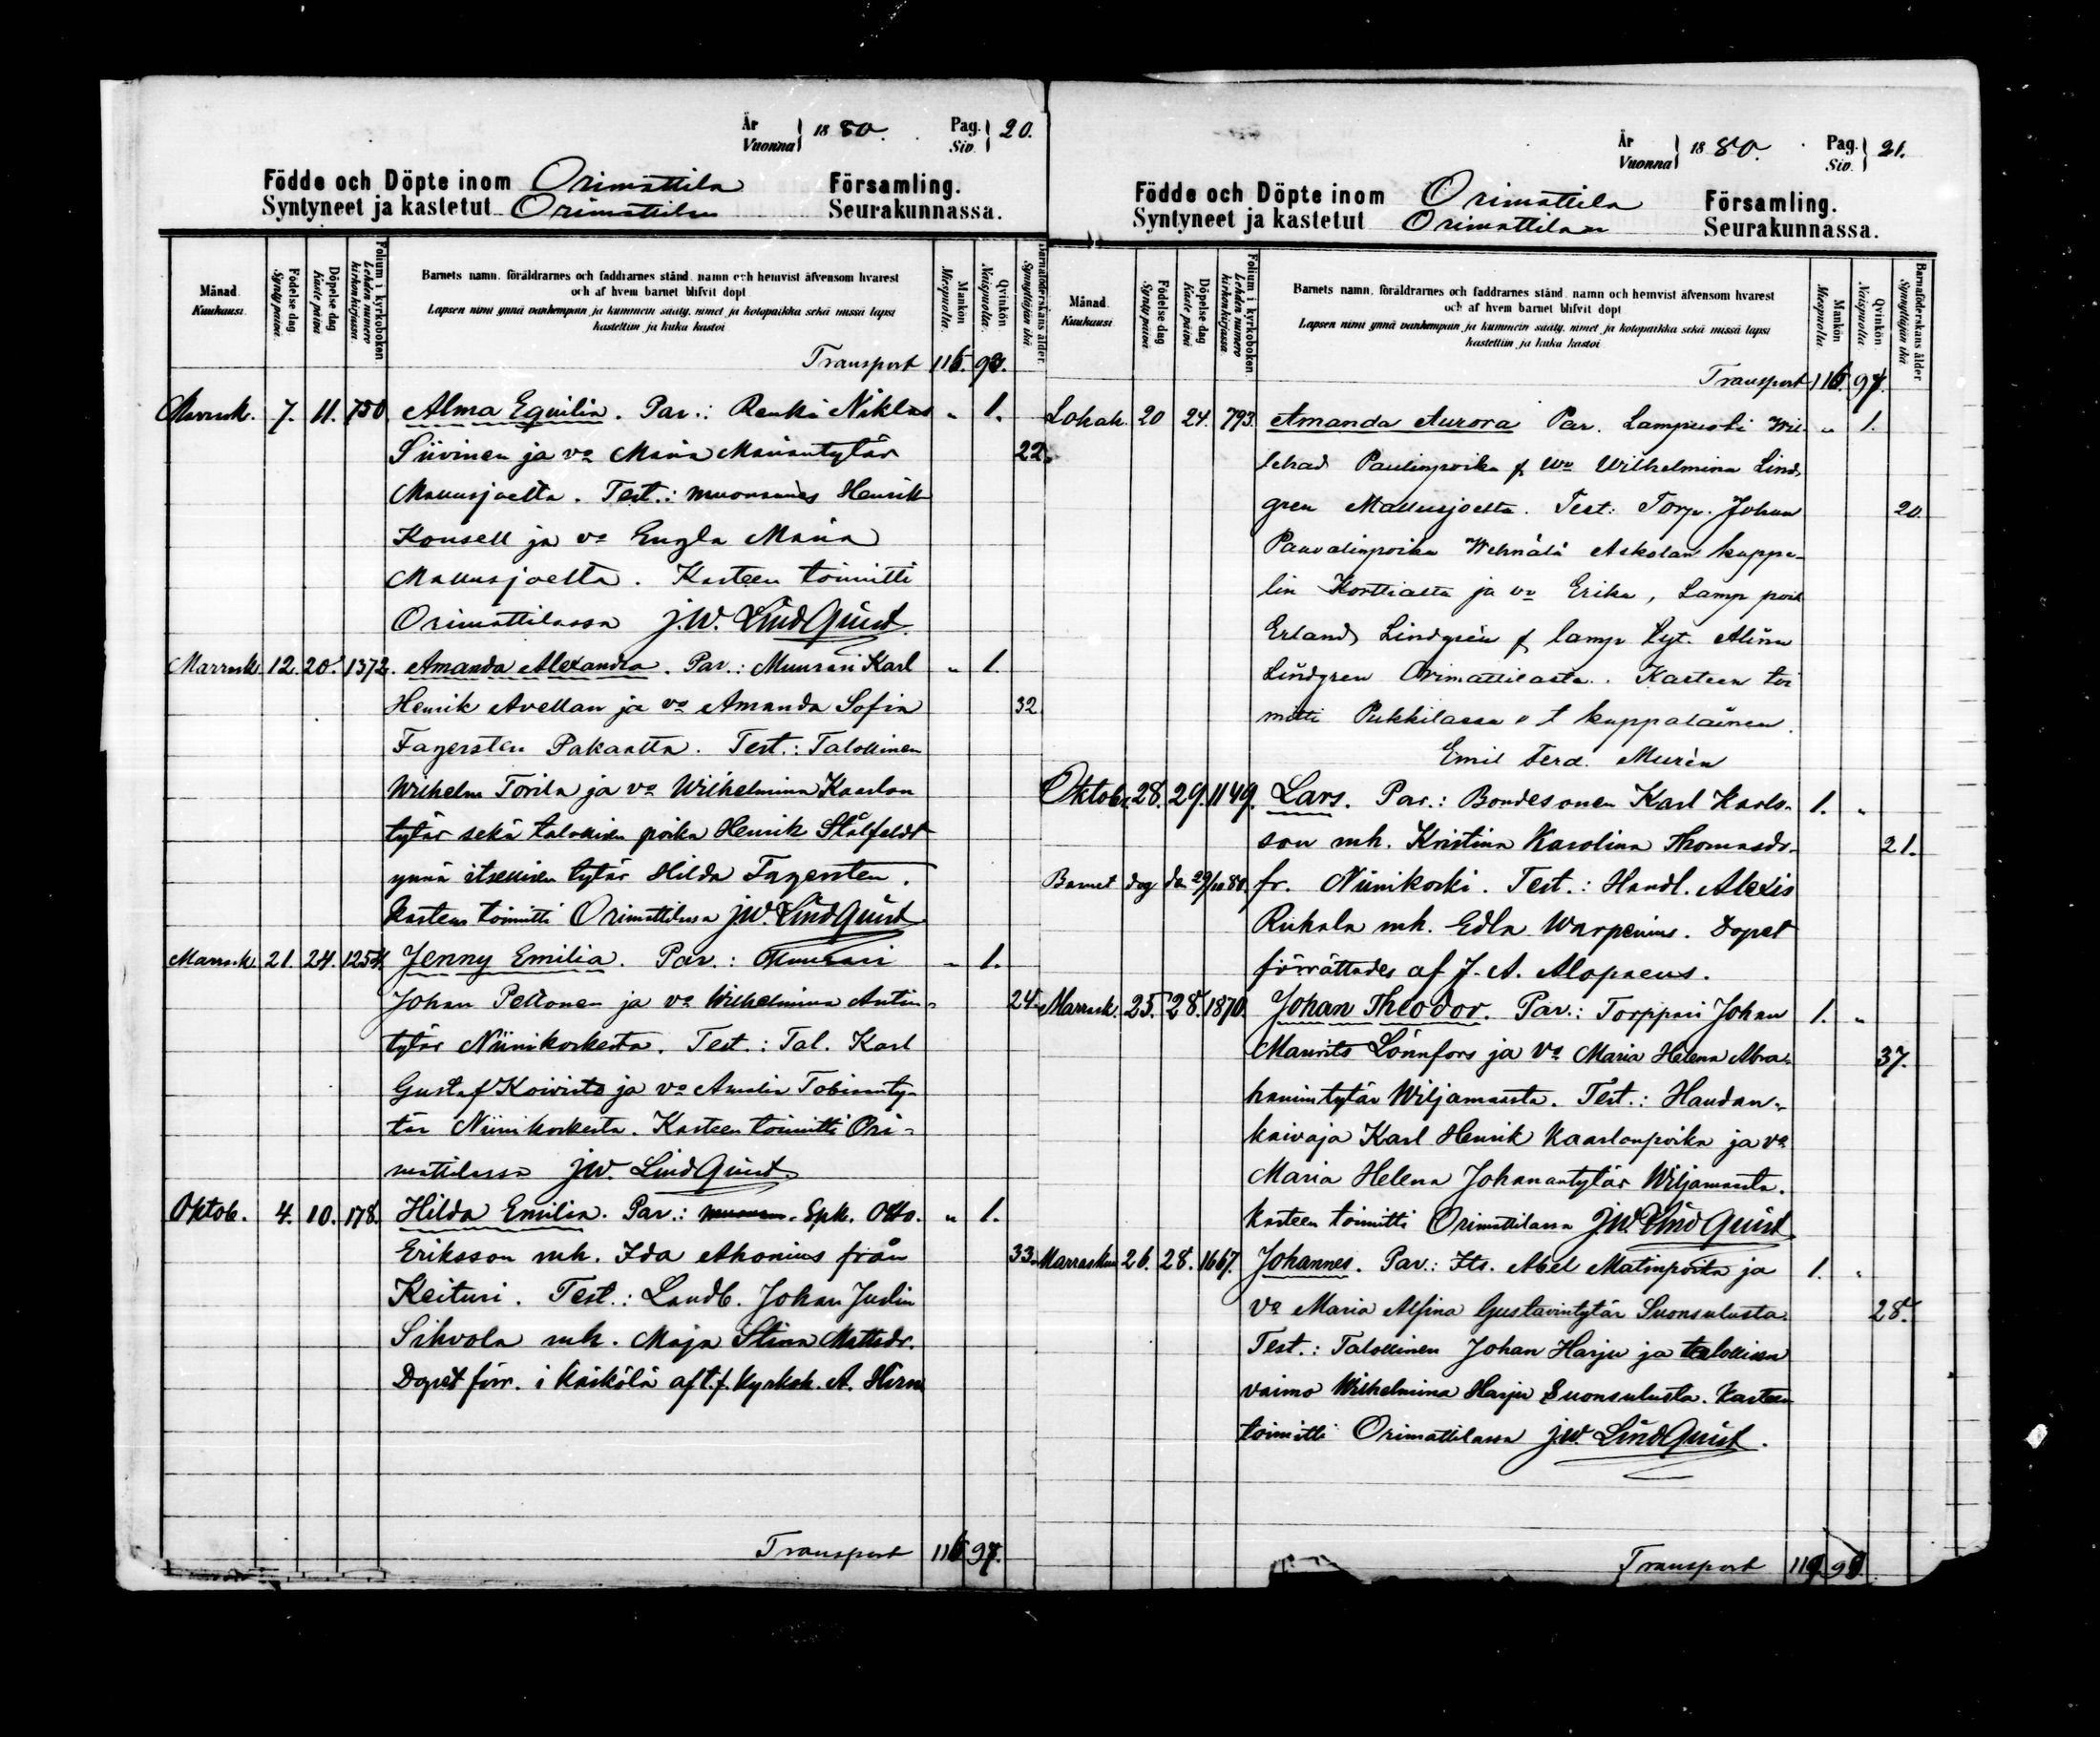 År
Vuonna } 1880. Pag.
Siv. } 20.
Födde och Döpte inom Orimattila Församling.
Syntyneet ja kastetut Orimattilan Seurakunnassa.
Månad. Kuukausi. Födelse dag Synty päivä. Döpelse dag Kaste päivä Folium i kyrkoboken. Lehden numero kirkonkirjassa. Barnets namn, föräldrarnes och faddrarnes stånd, namn och hemvist äfvensom hvarest Mankön Miespuolta. Qvinkön Naispuolta. Barnaföderskans ålder. Synnyttäjän ikä
och af hvem barnet blifvit döpt
Lapsen nimi ynnä vanhempain ja kummein sääty, nimet ja kotopaikka sekä missä lapsi
kastettiin ja kuka kastoi
Transport 116. 93.
Marrask. 7. 11. 750. Alma Equilin. Par.: Renki Niklas " 1.
Siivinen ja vo Maria Mariantytär 22.
Mallusjoelta. Test.: muonamies Henrik
Konsell ja vo Engla Maria
Mallusjoelta. Kasteen toimitti
Orimattilassa J.W. LindQuist.
Marrask. 12. 20. 1372. Amanda Alexandra. Par.: Muurari Karl " 1.
Henrik Avellan ja vo Amanda Sofia 32
Fagersten Pakaalta. Test.: Talollinen
Wilhelm Torila ja vo Wilhelmina Kaarlon
tytär sekä talollisen poika Henrik Stålfeldt
ynnä itsellisen tytär Hilda Fagersten.
Kasteen toimitti Orimattilassa J.W. LindQuist
Marrask. 21. 24. 1254. Jenny Emilia. Par.: Muurari " 1.
Johan Peltonen ja vo Wilhelmina Antin- 24.
tytär Niinikoskesta. Test.: Tal. Karl
Gustaf Koivisto ja vo Amalia Tobiaanty-
tär Niinikoskesta. Kasteen toimitti Ori-
mattilassa J.W. LindQuist
Oktob. 4. 10. 178. Hilda Emilia. Par.: Spk. Otto. " 1.
Eriksson mh. Ida Ahonius från 33.
Keituri. Test.: Landb. Johan Judin
Sihvola mh. Maja Stina Mattsdr.
Dopet förr. i Kärkölä af t.f. Kyrkoh. A. Hirn
Transport 116 97.
År
Vuonna } 1880. Pag.
Siv. } 21.
Födde och Döpte inom Orimattila Församling.
Syntyneet ja kastetut Orimattilan Seurakunnassa.
Månad. Kuukausi. Födelse dag Synty päivä Döpelse dag Kaste päivä Folium i kyrkoboken Lehden numero kirkonkirjassa. Barnets namn, föräldrarnes och faddrarnes stånd, namn och hemvist äfvensom hvarest Mankön Miespuolta Qvinkön Naispuolta Barnaföderskans ålder Synnyttäjän ikä
och af hvem barnet blifvit döpt
Lapsen nimi ynnä vanhempain ja kummein sääty, nimet ja kotopaikka sekä missä lapsi
kastettiin ja kuka kastoi
Transport 116. 97.
Lokak. 20 24. 793. Amanda Aurora Par. Lampuoti Wil- " 1.
lehad Paulinpoika & Wo Wilhelmina Lind-
gren Mallusjoelta. Test: Torp. Johan 20.
Paavalinpoika Askolan kappe-
lin Korttialta ja vo Erika, Lamp poik
Erland Lindgrén & lamp tyt. Alina
Lindgren Orimattilasta. Kasteen toi
mitti Pukkilassa v t kappalainen.
Emil Ferd. Murén
Oktober 28. 29. 1149. Lars. Par.: Bondesonen Karl Karls- 1. "
son mh. Kristina Karolina Thomasdr. 21.
Barnet dog den 29/10 80. fr. Niinikoski. Test.: Handl. Alexis
Ruhala mh. Edla Warpenius. Dopet
förrättades af J. A. Alopaeus.
Marrask. 25. 28. 1870. Johan Theodor. Par.: Torppari Johan 1. "
Maurits Lönnfors ja vo Maria Helena Abra- 37.
hamintytär Wiljamaasta. Test.: Haudan-
kaivaja Karl Henrik Kaarlonpoika ja vo
Maria Helena Johanantytär Wiljamaasta.
Kasteen toimitti Orimattilassa J.W. LindQuist.
Marraskuu 26. 28. 1667. Johannes. Par.: Its. Abel Matinpoika ja 1. "
vo Maria Alfina Gustavintytär Suonsulusta. 28.
Test.: Talollinen Johan Harju ja talollisen
vaimo Wilhelmina Harju Suonsulusta. Kasteen
toimitti Orimattilassa J.W. LindQuist.
Transport 119. 98.